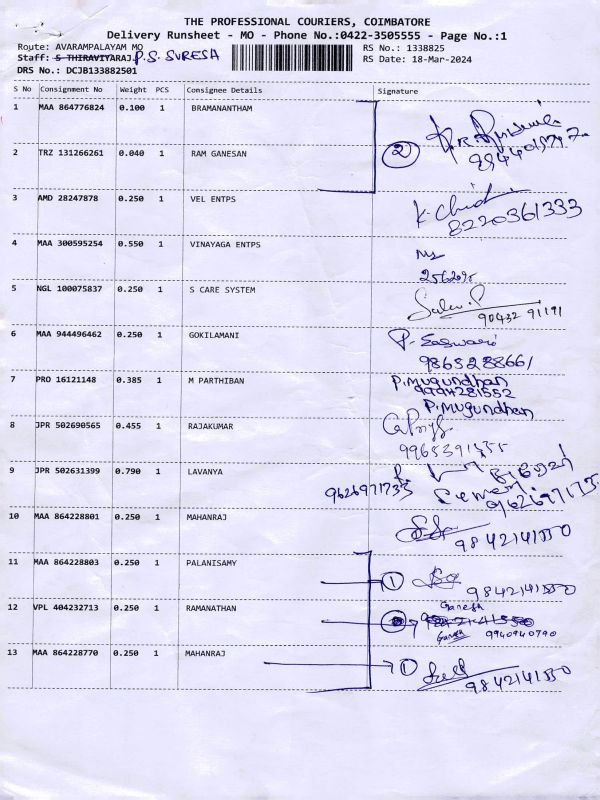 THE PROFESSIONAL COURIERS, COIMBATORE
Delivery Runsheet - MO - Phone No.:0422-3505555 - Page No.:1
Route: AVARAMPALAYAM MO RS No.: 1338825
Staff: S THIRAVIYARAJ P.S. SURESA RS Date: 18-Mar-2024
DRS No.: DCJB133882501
S No Consignment No Weight PCS Consignee Details Signature
1 MAA 864776824 0.100 1 BRAMANANTHAM
2 TRZ 131266261 0.040 1 RAM GANESAN 2
3 AMD 28247878 0.250 1 VEL ENTPS
8220361333
4 MAA 300595254 0.550 1 VINAYAGA ENTPS
5 NGL 100075837 0.250 1 S CARE SYSTEM
90432 91191
6 MAA 944496462 0.250 1 GOKILAMANI
9865288661
7 PRO 16121148 0.385 1 M PARTHIBAN P.Mugundhan
9994281552
P.Mugundhan
8 JPR 502690565 0.455 1 RAJAKUMAR
9 JPR 502631399 0.790 1 LAVANYA
10 MAA 864228801 0.250 1 MAHANRAJ
9842141550
11 MAA 864228803 0.250 1 PALANISAMY 1
9842141550
12 VPL 404232713 0.250 1 RAMANATHAN Ganesh
9940940790
13 MAA 864228770 0.250 1 MAHANRAJ 1
9842141550